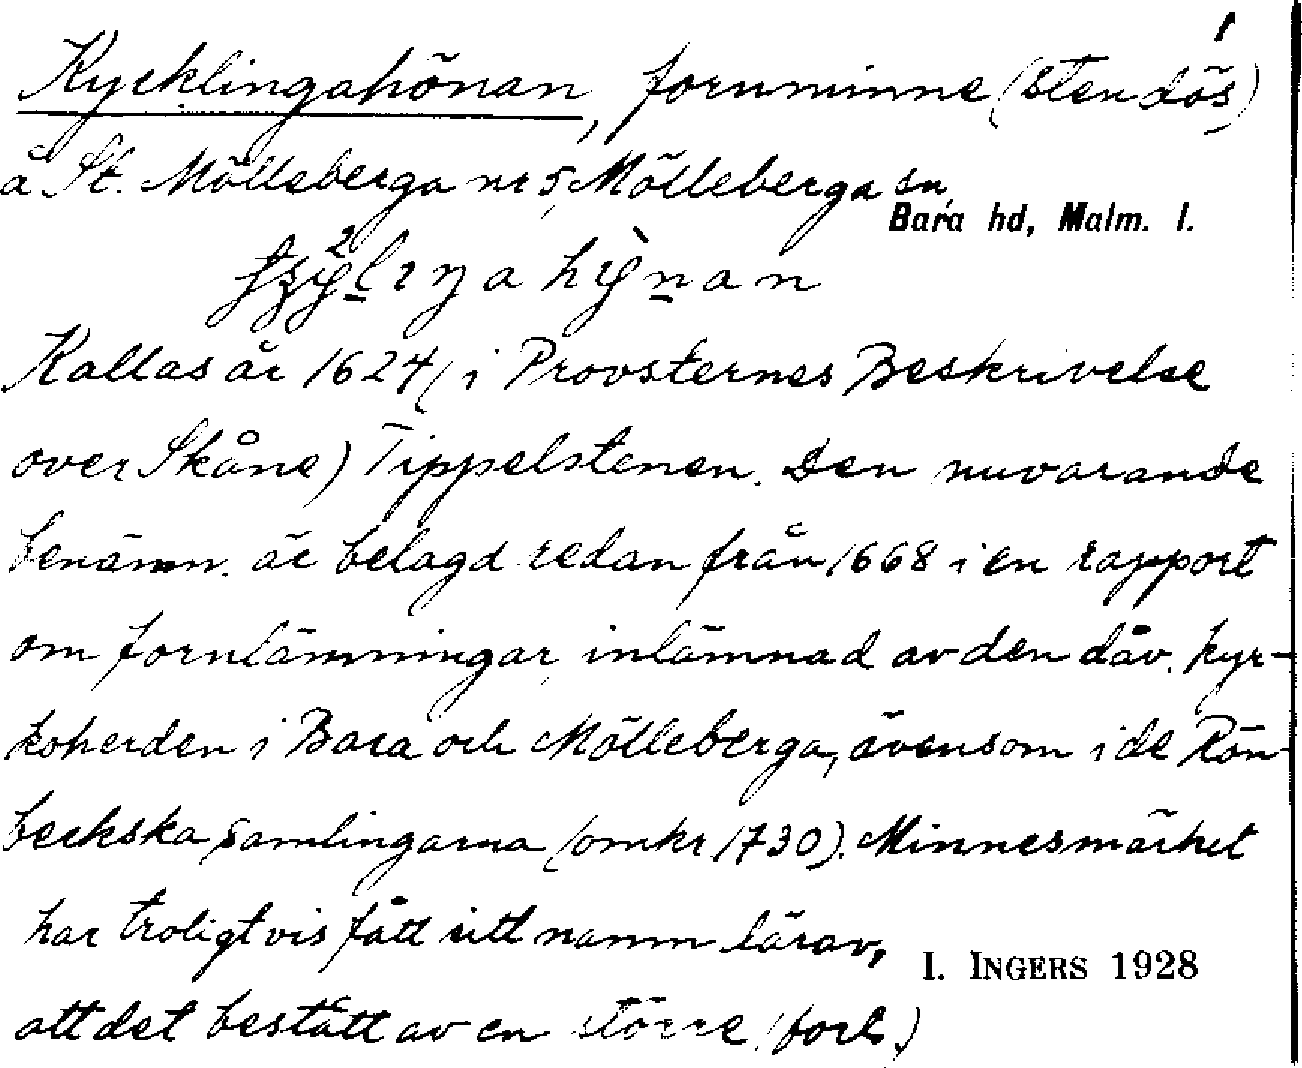 1
Kycklingahönan, fornminne (stendös)
å St. Mölleberga nr 5, Mölleberga sn,
Bara hd, Malm. l.
Kallas år 1624 (i Provsternes Beskrivelse
over Skåne) Tippelstenen. Den nuvarande
benämn. är belagd redan från 1668 i en rapport
om fornlämningar, inlämnad av den dåv. kyr-
koherden i Bara och Mölleberga, ävensom i de Rön-
beckska samlingarna (omkr 1730). Minnesmärket
har troligtvis fått sitt namn därav,
I. INGERS 1928
att det bestått av en större (forts.)